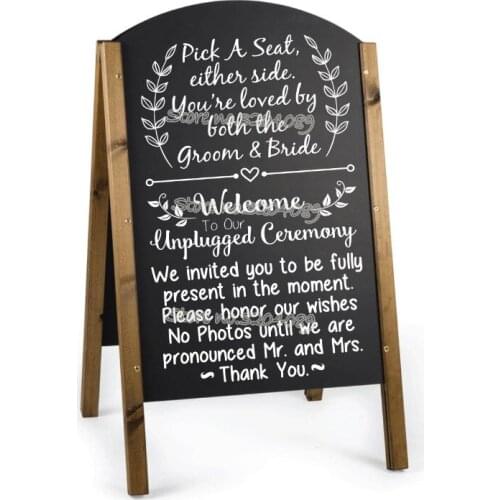 Pick A Seat,
either side.
You're loved by
both the
Groom & Bride
Welcome
To Our
Unplugged Ceremony
We invited you to be fully
present in the moment.
Please honor our wishes
No Photos until we are
pronounced Mr. and Mrs.
~ Thank You. ~